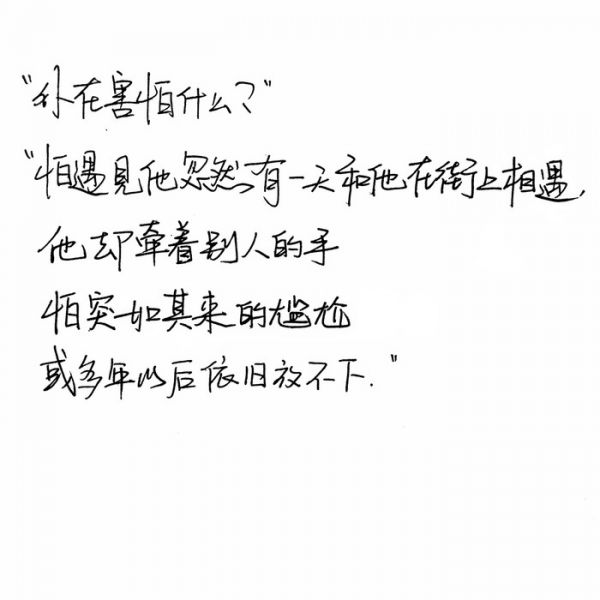 "你在害怕什么？"
"怕遇見他忽然有一天和他在街上相遇，
他却牵着别人的手
怕突如其来的尴尬
或多年以后依旧放不下."